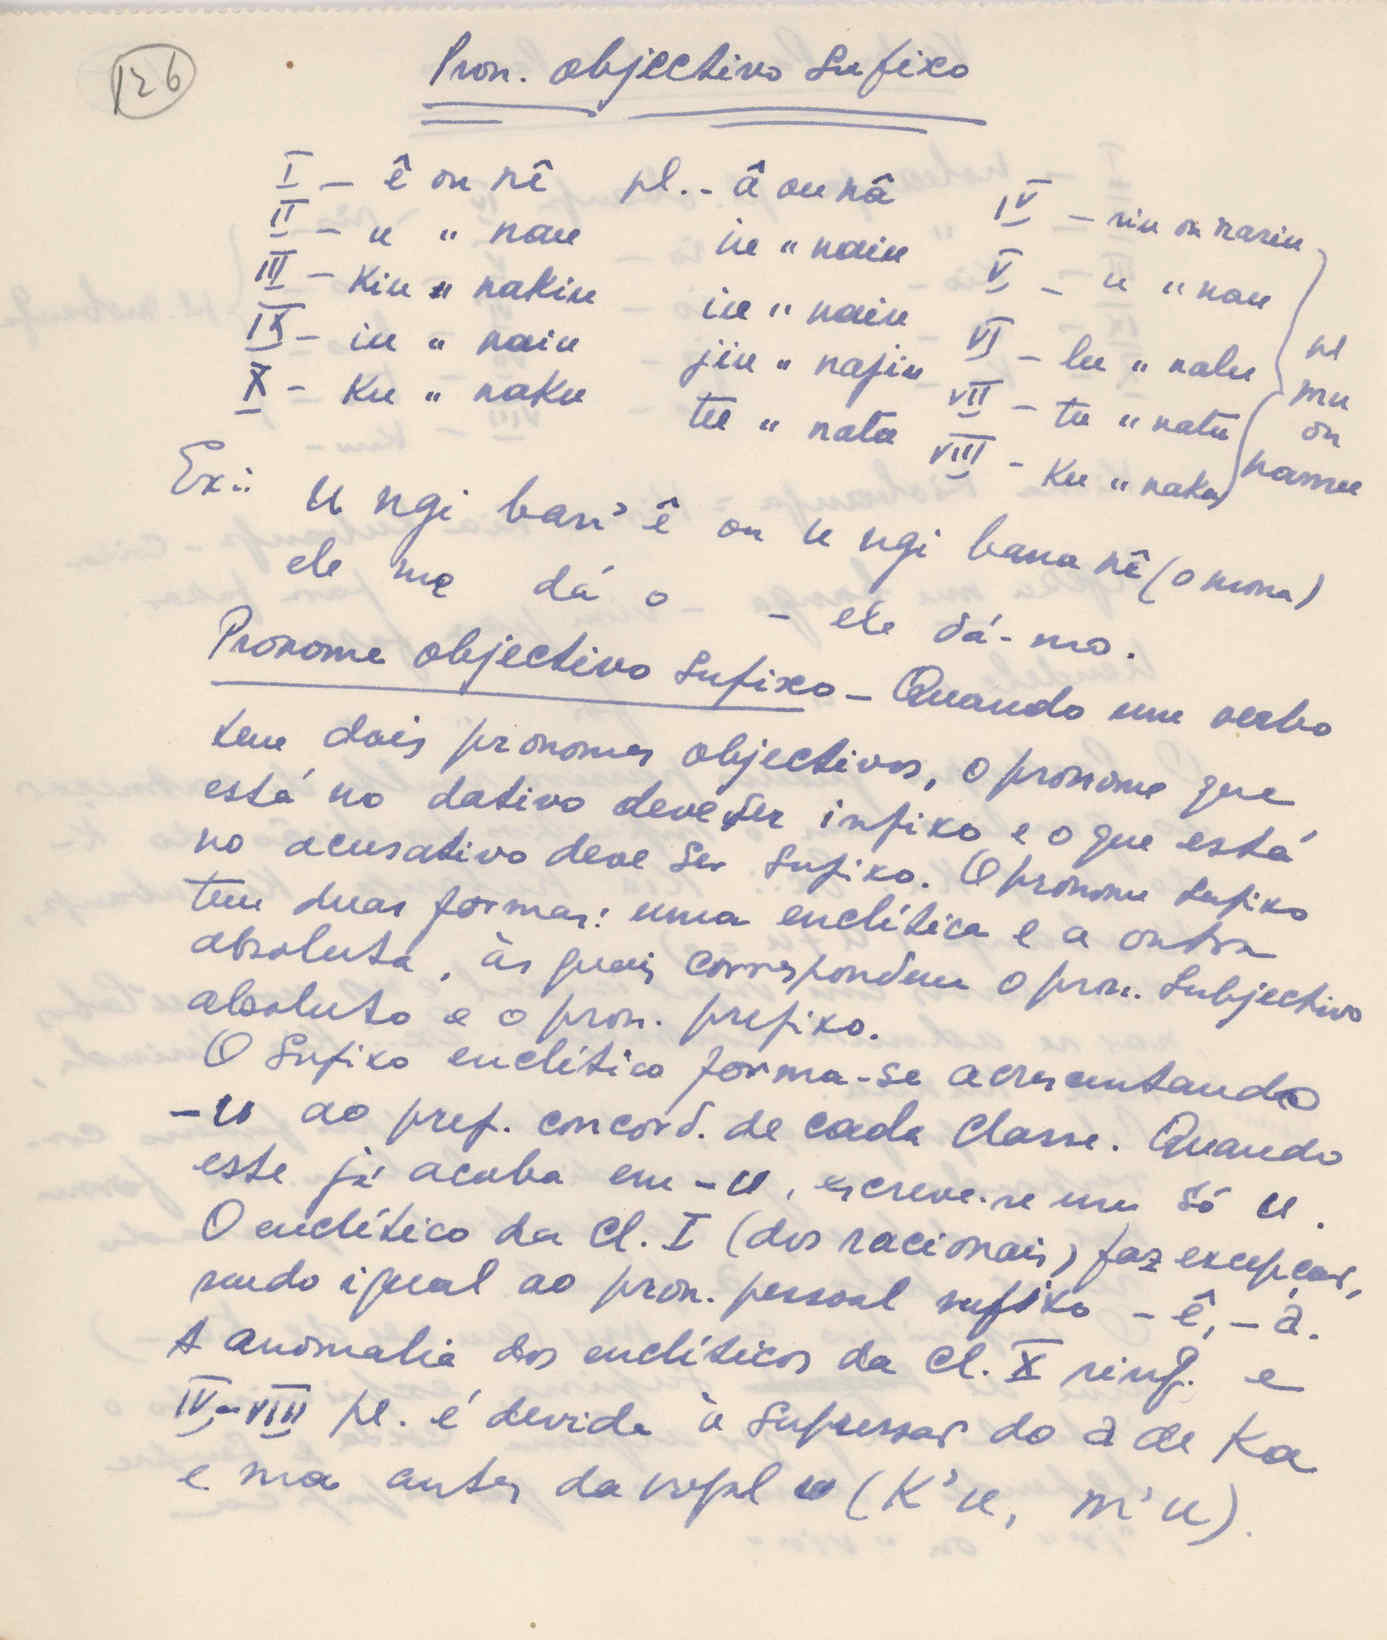 126
Pron. objectivo Sufixo
I - ê ou nê pl. - â ou nâ IV - riu ou nariu
II - u " nau iu " naiu V - u " nau
III - Kiu " nakiu iu " naiu VI - lu " nalu
IX - iu " naiu jiu " najiu VII - tu " natu
X - Ku " naku tu " natu VIII - Ku " naku
pl
mu
ou
namu
Ex.: u ngi ban' ê ou u ngi bana nê (o mona)
ele me dá o - ele dá-mo.
Pronome objectivo Sufixo - Quando um verbo
tem dois pronomes objectivos, o pronome que
está no dativo deve ser infixo e o que está
no acusativo deve ser sufixo. O pronome sufixo
tem duas formas: uma enclítica e a outra
absoluta, às quais correspondem o pron. Subjectivo
absoluto e o pron. prefixo.
O Sufixo enclítico forma-se acrescentando
-u ao pref. concord. de cada Classe. Quando
este já acaba em -u, escreve-se um só u.
O enclítico da Cl. I (dos racionais) faz excepção,
sendo igual ao pron. pessoal sufixo - ê, - a.
A anomalia dos enclíticos da Cl. X sing. e
IV-VIII pl. é devida à Supressão do a de Ka
e ma antes da vogal u (K'u, m'u).